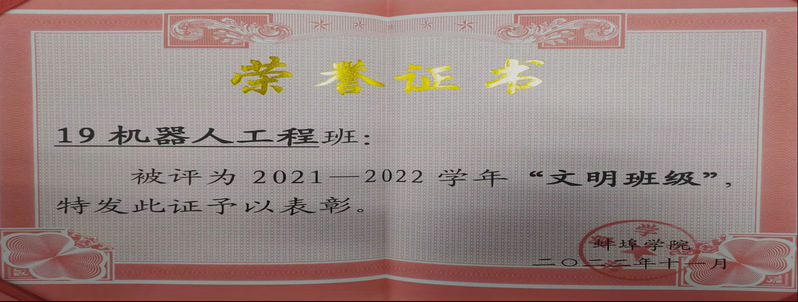 荣誉证书
19机器人工程班：
被评为2021—2022学年“文明班级”，
特发此证予以表彰。
蚌埠学院
二〇二二年十一月